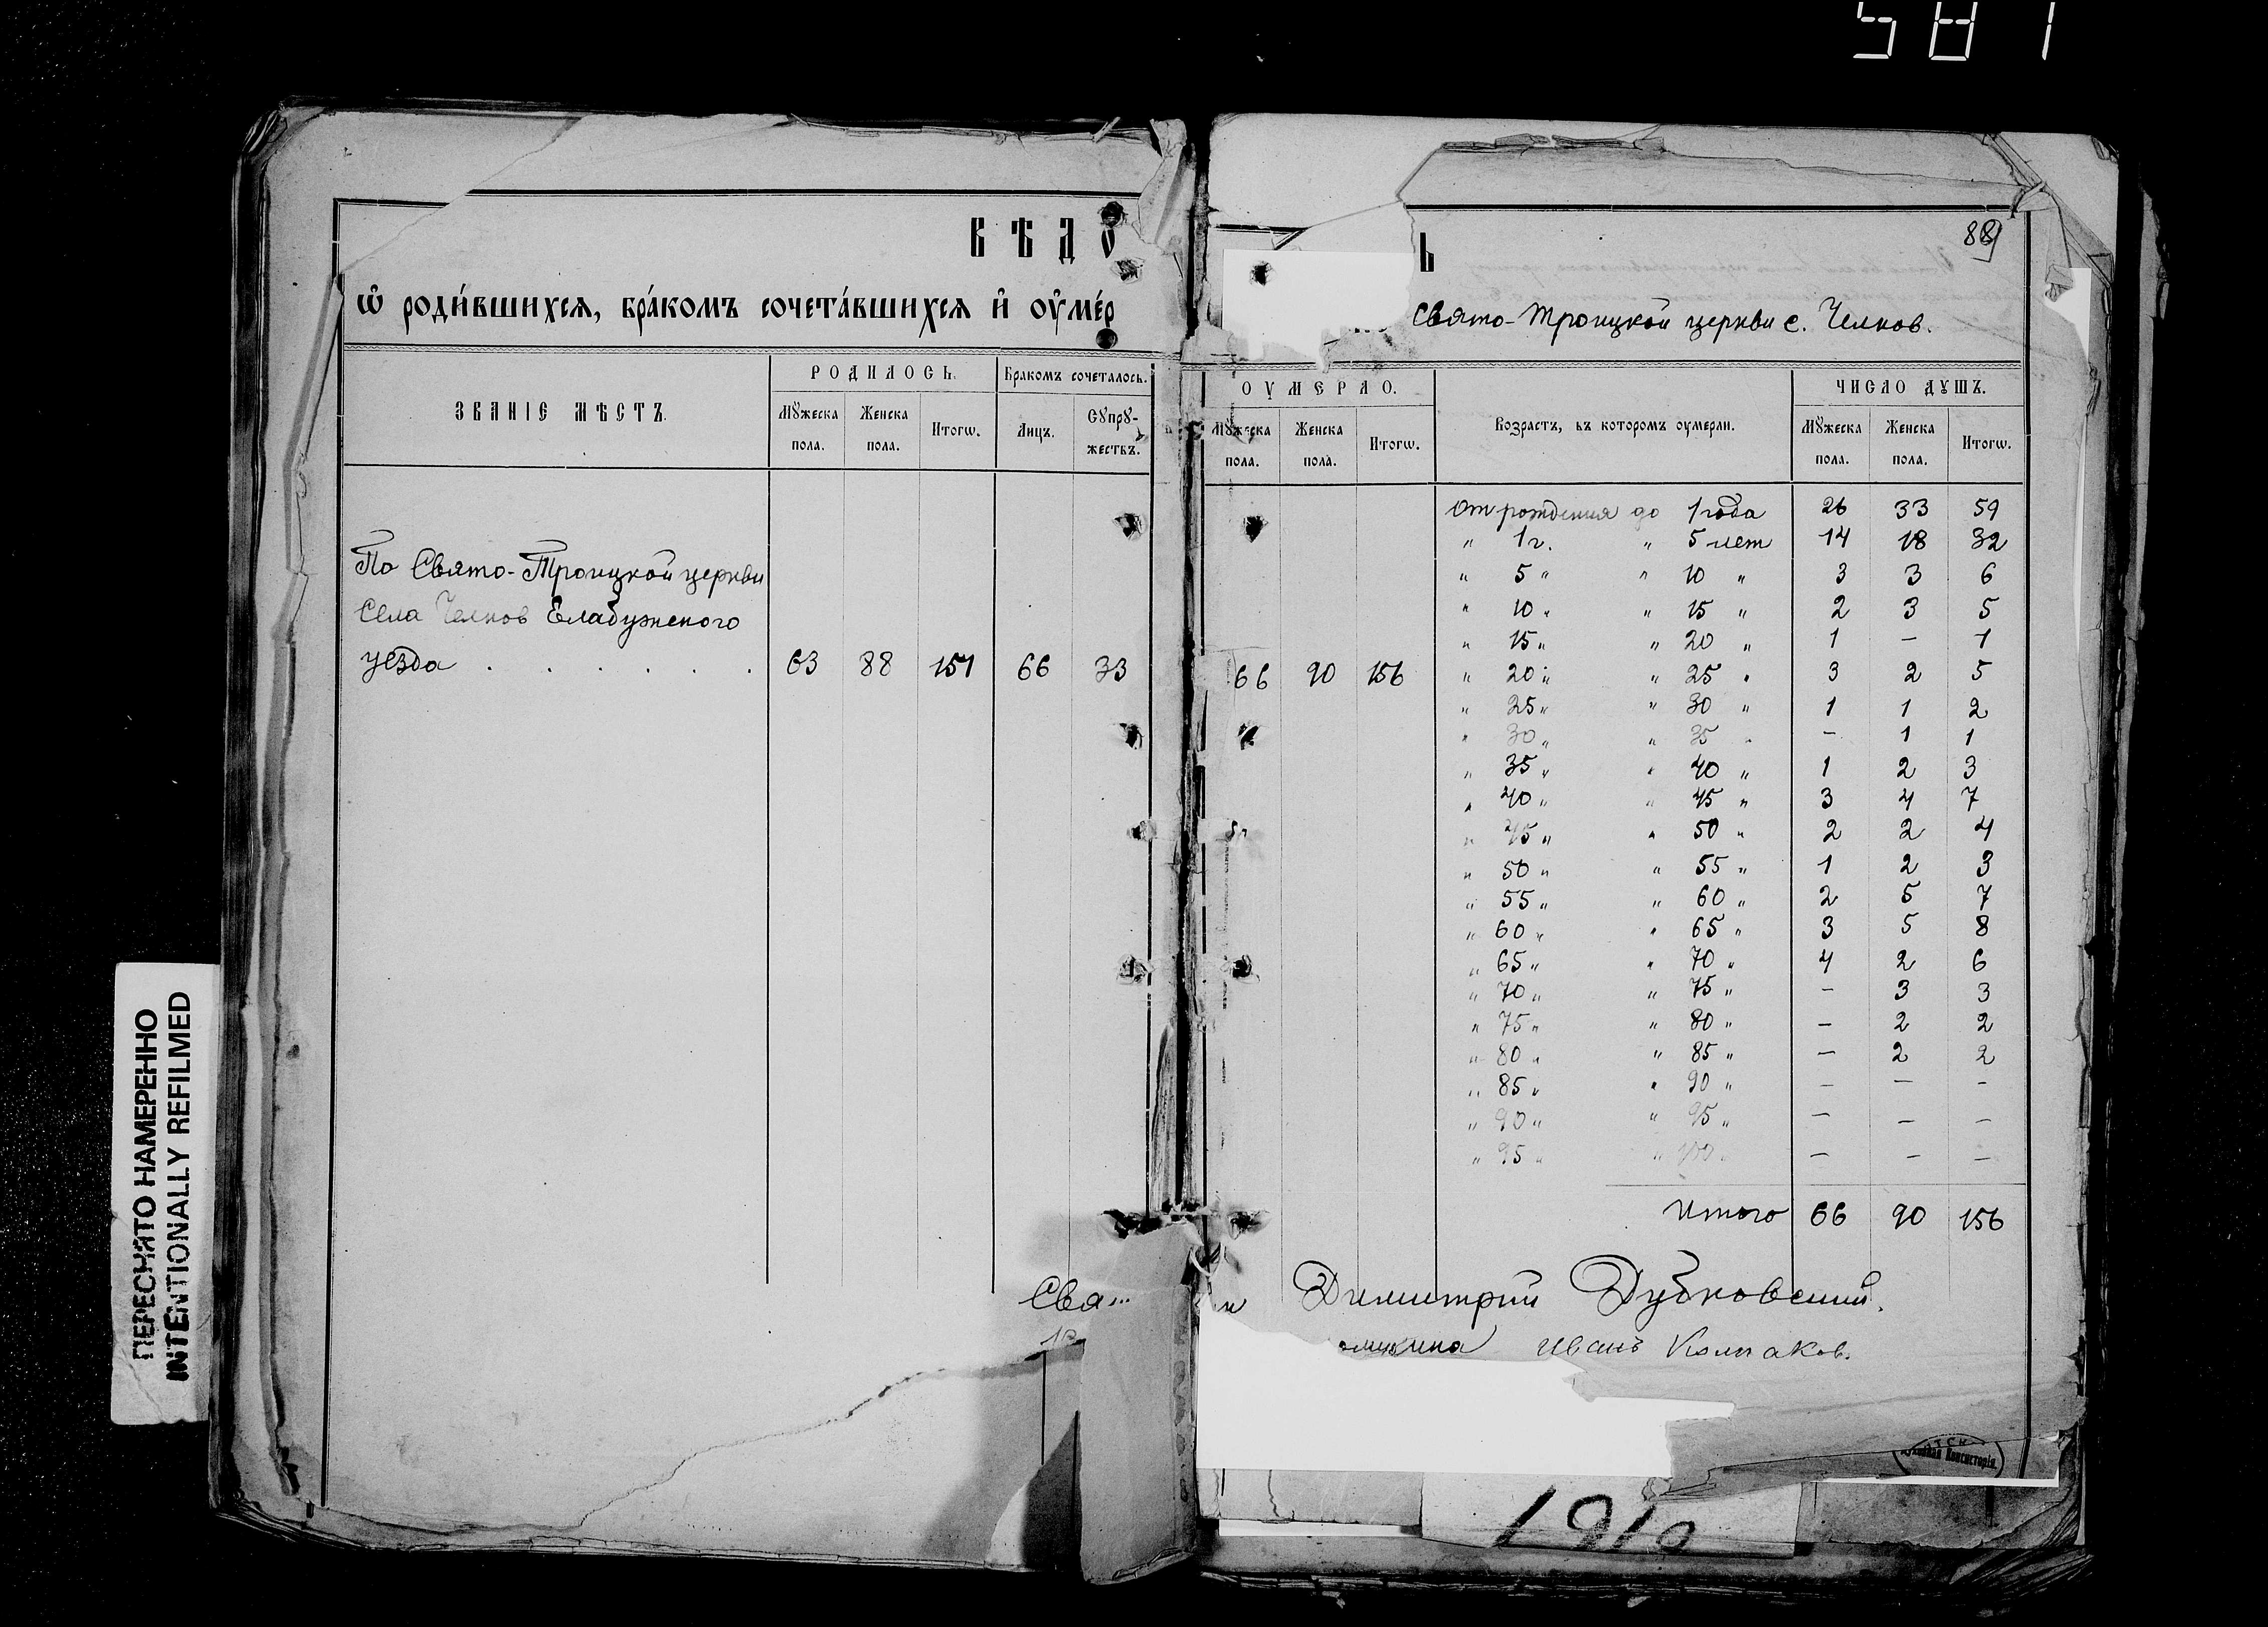 581
ВѢДО
ѡ҆ роди́вшихся, бра́комъ сочета́вшихся и҆ оу҆ме́р
ЗВАНІЕ МѢСТЪ.
РОДИЛОСЬ.
Бракомъ сочеталось.
Мꙋжеска пола.
Женска пола.
Итогѡ.
Лицъ.
Сꙋпрꙋ-
жествъ.
По Свято-Троицкой церкви
Села Челнов Елабужского
уезда . . . . . . 63 88 151 66 33
Свя
ПЕРЕСНЯТО НАМЕРЕННО
INTENTIONALLY REFILMED
Ь
89
Свято-Троицкой церкви с. Челнов.
ОУМЕРЛО.
Возрастъ, въ которомъ оумерли.
ЧИСЛО ДꙊШЪ.
Мꙋжеска пола.
Женска пола.
Итогѡ.
Мꙋжеска пола.
Женска пола.
Итогѡ.
66 90 156
От рождения до 1 года 26 33 59
" 1 г. " 5 лет 14 18 32
" 5 " " 10 " 3 3 6
" 10 " " 15 " 2 3 5
" 15 " " 20 " 1 — 1
" 20 " " 25 " 3 2 5
" 25 " " 30 " 1 1 2
" 30 " " 35 " — 1 1
" 35 " " 40 " 1 2 3
" 40 " " 45 " 3 4 7
" 45 " " 50 " 2 2 4
" 50 " " 55 " 1 2 3
" 55 " " 60 " 2 5 7
" 60 " " 65 " 3 5 8
" 65 " " 70 " 4 2 6
" 70 " " 75 " — 3 3
" 75 " " 80 " — 2 2
" 80 " " 85 " — 2 2
" 85 " " 90 " — — —
" 90 " " 95 " — — —
" 95 " " 100 " — — —
Итого 66 90 156
Димитрий Дубковский.
Иванъ Колпаков.
Духовная Консисторія
1919